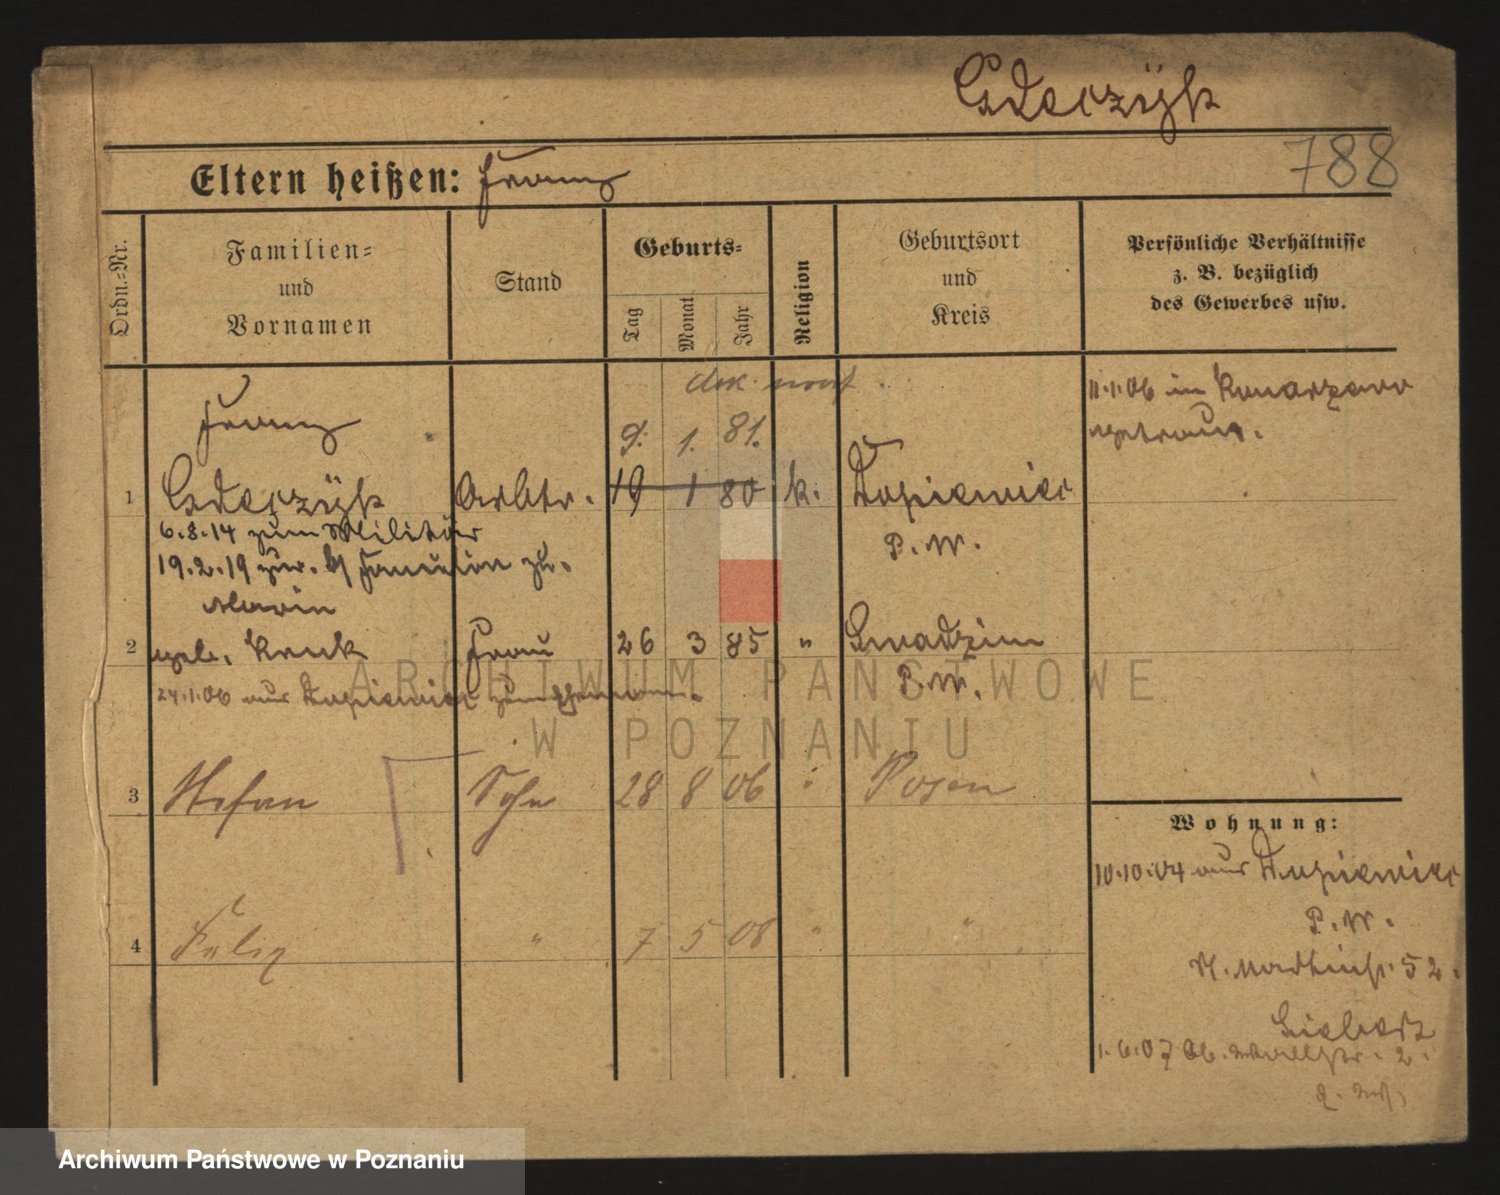 Gdeczÿk
788
Eltern heißen: Franz
Ordn.-Nr.
Familien-
und
Vornamen
Stand
Geburts-
Tag
Monat
Jahr
Religion
Geburtsort
und
Kreis
Persönliche Verhältnisse
z. B. bezüglich
des Gewerbes usw.
11.1.06 in Konarzewo
getraut.
Franz
9. 1. 81.
1 Gdeczÿk Arbtr. 19 1 80 k. Dopiewiec
P. W.
6.8.14 zum Militär
19.2.19 zur.
Marie
2 geb. Kruk Frau 26 3 85 " Gwadzim
P. W.
24.1.06 aus Dopiewiec zum Ehemann.
3 Stefan Sohn 28 8 06 " Posen
4 Felix " 7 5 08 " "
Wohnung:
10.10.04 aus Dopiewiec
P. W.
52.
1.6.07 Wallstr. 2.
ARCHIWUM PAŃSTWOWE
W POZNANIU
Archiwum Państwowe w Poznaniu